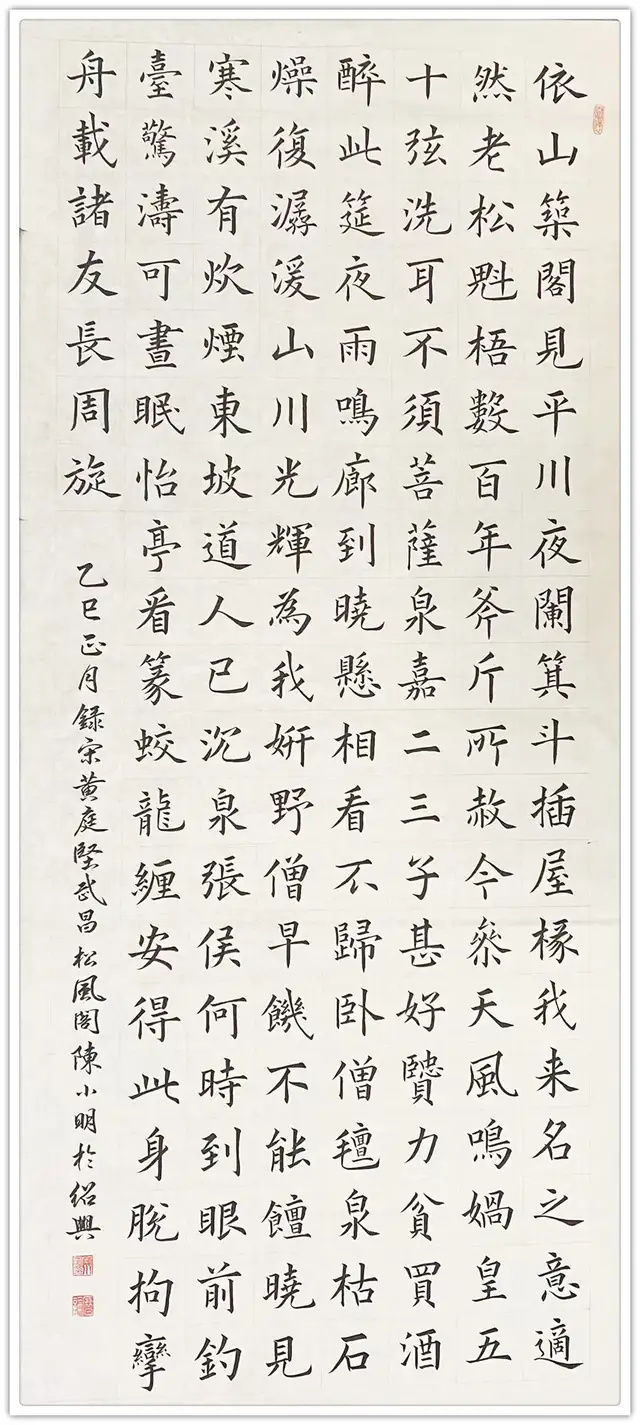 依山築閣見平川夜闌箕斗插屋椽我来名之意適
然老松魁梧數百年斧斤所赦今叅天風鳴媧皇五
十弦洗耳不須菩薩泉嘉二三子甚好賢力貧買酒
醉此筵夜雨鳴廊到曉懸相看不歸臥僧氊泉枯石
燥復潺湲山川光輝為我妍野僧早饑不能饘曉見
寒溪有炊煙東坡道人已沉泉張侯何時到眼前釣
臺驚濤可晝眠怡亭看篆蛟龍纏安得此身脫拘攣
舟載諸友長周旋
乙巳正月録宋黄庭堅武昌松風閣陳小明於紹興